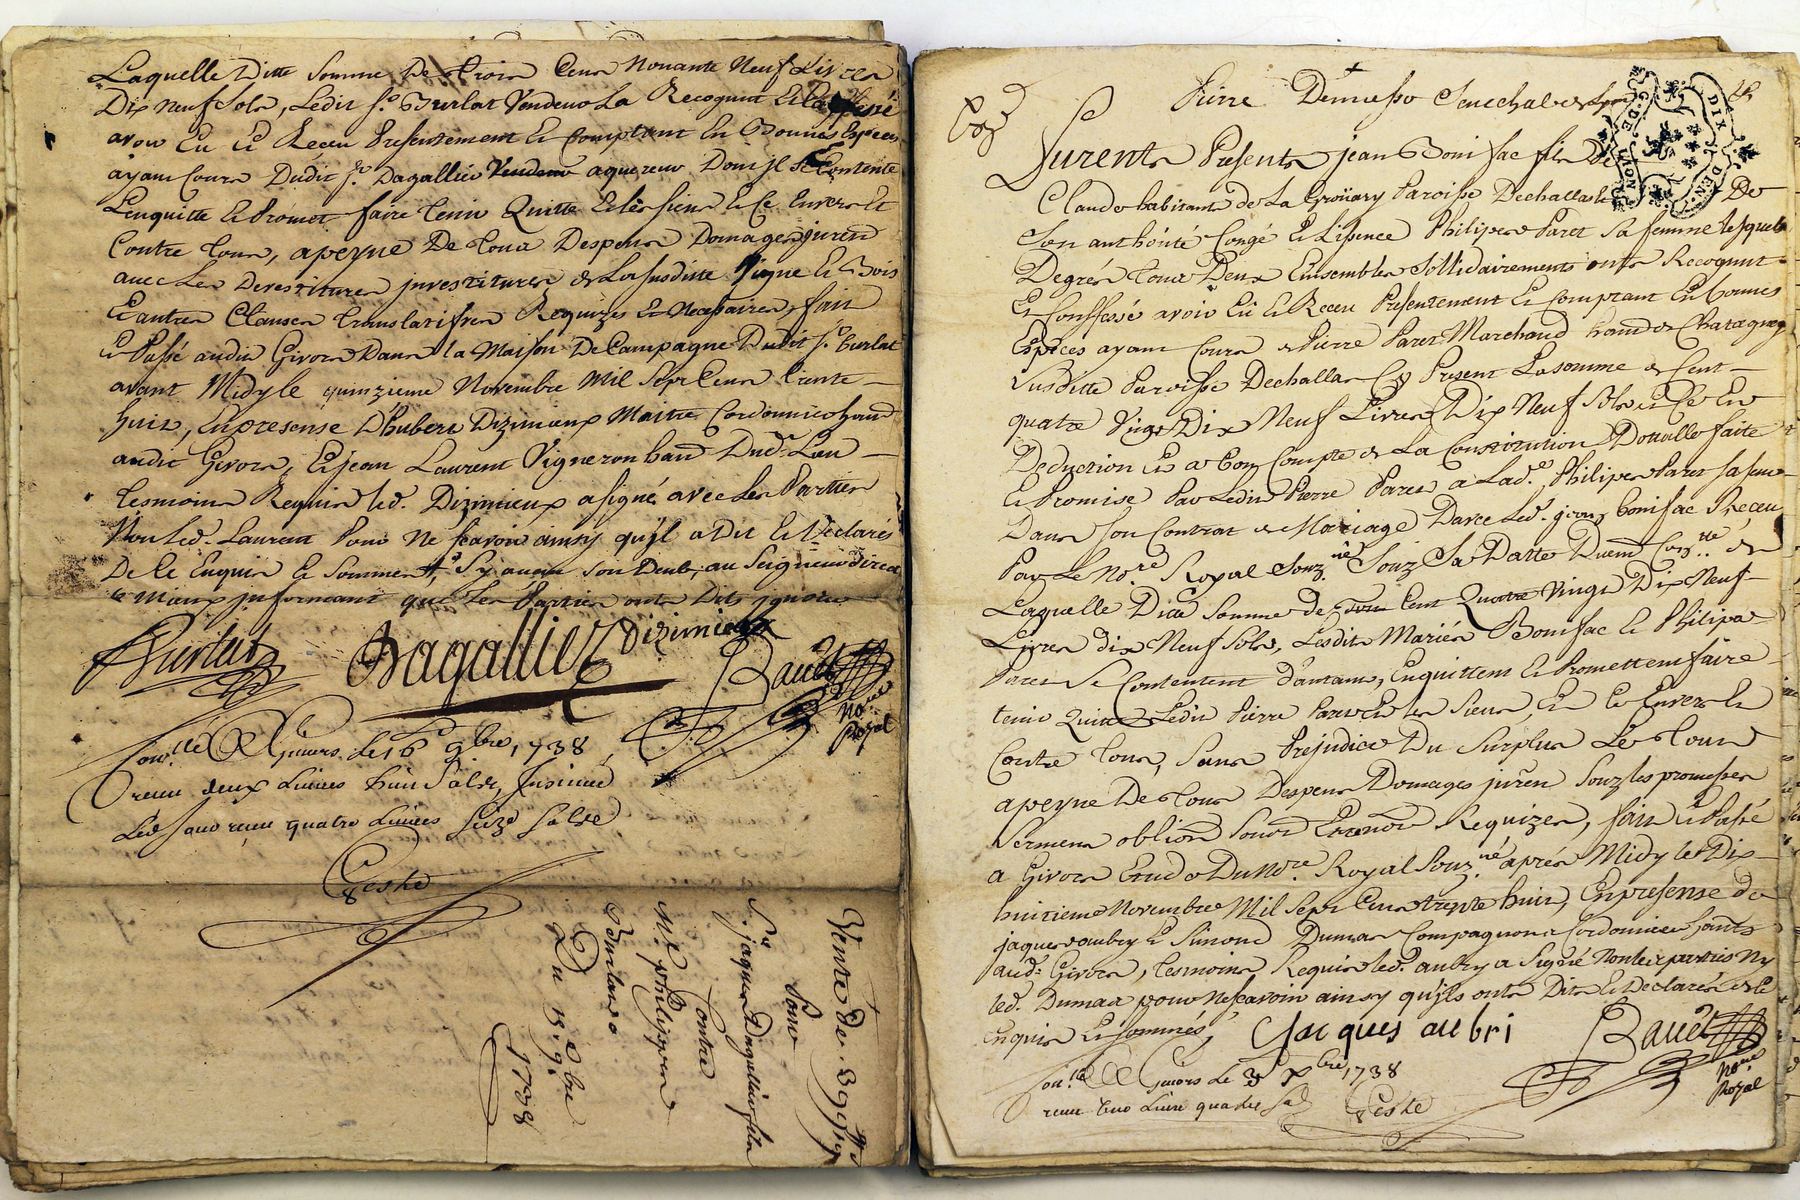 Laquelle Ditte Somme De Trois Cens Nonante Neuf Livres
Dix Neuf Sols, Ledit Sr. Burlat Vendeur La Recognut Et
avoir Eu Et Receu Presentement Et Comptant En Bonnes Especes
ayant Cours Dudit Sr. Dagallier aquereur Dont Il Se Contente
L'enquitte Et Promet faire tenir Quitte Et les siens Et Ce Envers Et
Contre tous, apeyne De tous Despens Domages juren
avec Les Devestitures jnvestitures de La susditte Vigne Et Bois
Et autres Clauses translatifves Requizes Et Necessaires, fait
Et Passé audit Givors Dans la Maison De Campagne Dudit Sr. Burlat
avant Midy le quinzieme Novembre Mil Sept Cens trente
huit, En presense D'hubert Dizimieux Maitre Cordonnier
audit Givors, Et jean Laurent Vigneron Dud. Lieu
tesmoins Requis led. Dizimieux a signé avec Les Parties
Non Led. Laurent Pour Ne scavoir ainsy qu'jl a Dit Et Declaré
De Ce Enquis Et Sommé,
le Mieux jnformant que Les Parties ont Dits jgnorer
Burlat Dagallier Dizimieux
Baud No.re Royal
Con.lle A Givors Le 16e 9bre, 1738
receu deux Livres huit Sols, Insinué
Led jour receu quatre Livres Seize Sols
Geste
Vente de 399 19
Pour
Sr. jaques Dagallier fils
Contre
Me. philippe
Burlat
Du 15e 9bre
1738
Pierre Senechal
G. DE LYON
DIX DEN.
Furents Presents jean Bonifac fils De
Claude habitant de La Paroisse Dechallas De
Son authorité Congé Et Lisence Philipe Paret Sa femme lesquels
Degrés tous Deux Ensembles Sollidairements onts Recognut
Et Conffessé avoir Eu Et Receu Presentement Et Comptant En bonnes
Espèces ayant Cours de Pierre Paret Marchand
Susditte Paroisse Dechallas Cy Present La somme de Cent
quatre Vingt Dix Neuf Livres Dix Neuf Sols Et Ce En
Deduction Et a bon Compte de La Constitution Dotalle faite
Et Promise Par Ledit Pierre Paret a Lad. Philipe Paret sa
Dans son Contrat de Mariage Davec Led. jean bonifac Receu
Par Le No.re Royal Souz.né Souz Sa Datte
Laquelle Ditte Somme de Cent Quatre Vingt Dix Neuf
Livres dix Neuf Sols, Lesdits Mariés Bonifac Et Philipe
Paret Se Contentent D'autant, Enquittent Et Promettent faire
tenir Quitte Ledit Pierre Paret Et les Siens, Et Ce Envers Et
Contre tous, Sans Préjudice Du Surplus Le tout
apeyne De tous Despens Domages jurén Souz les promesses
Sermens oblion Requizes, fait Et Passé
a Givors Etude Du No.re Royal Souz.né après Midy le Dix
huitieme Novembre Mil Sept Cens trente huit, En presense de
jaques aubry Et Simond Dumas Compagnons Cordonniers
aud. Givors, tesmoins Requis led. aubry a Signé Non les parties Ny
led. Dumas pour Ne scavoir ainsy qu'jls onts Dits Et Declarés de Ce
Enquis Et Sommés,
jacques aubri Baud No.re Royal
Con.lle A Givors Le 3e Xbre, 1738
receu une Livre quatre Sols Geste